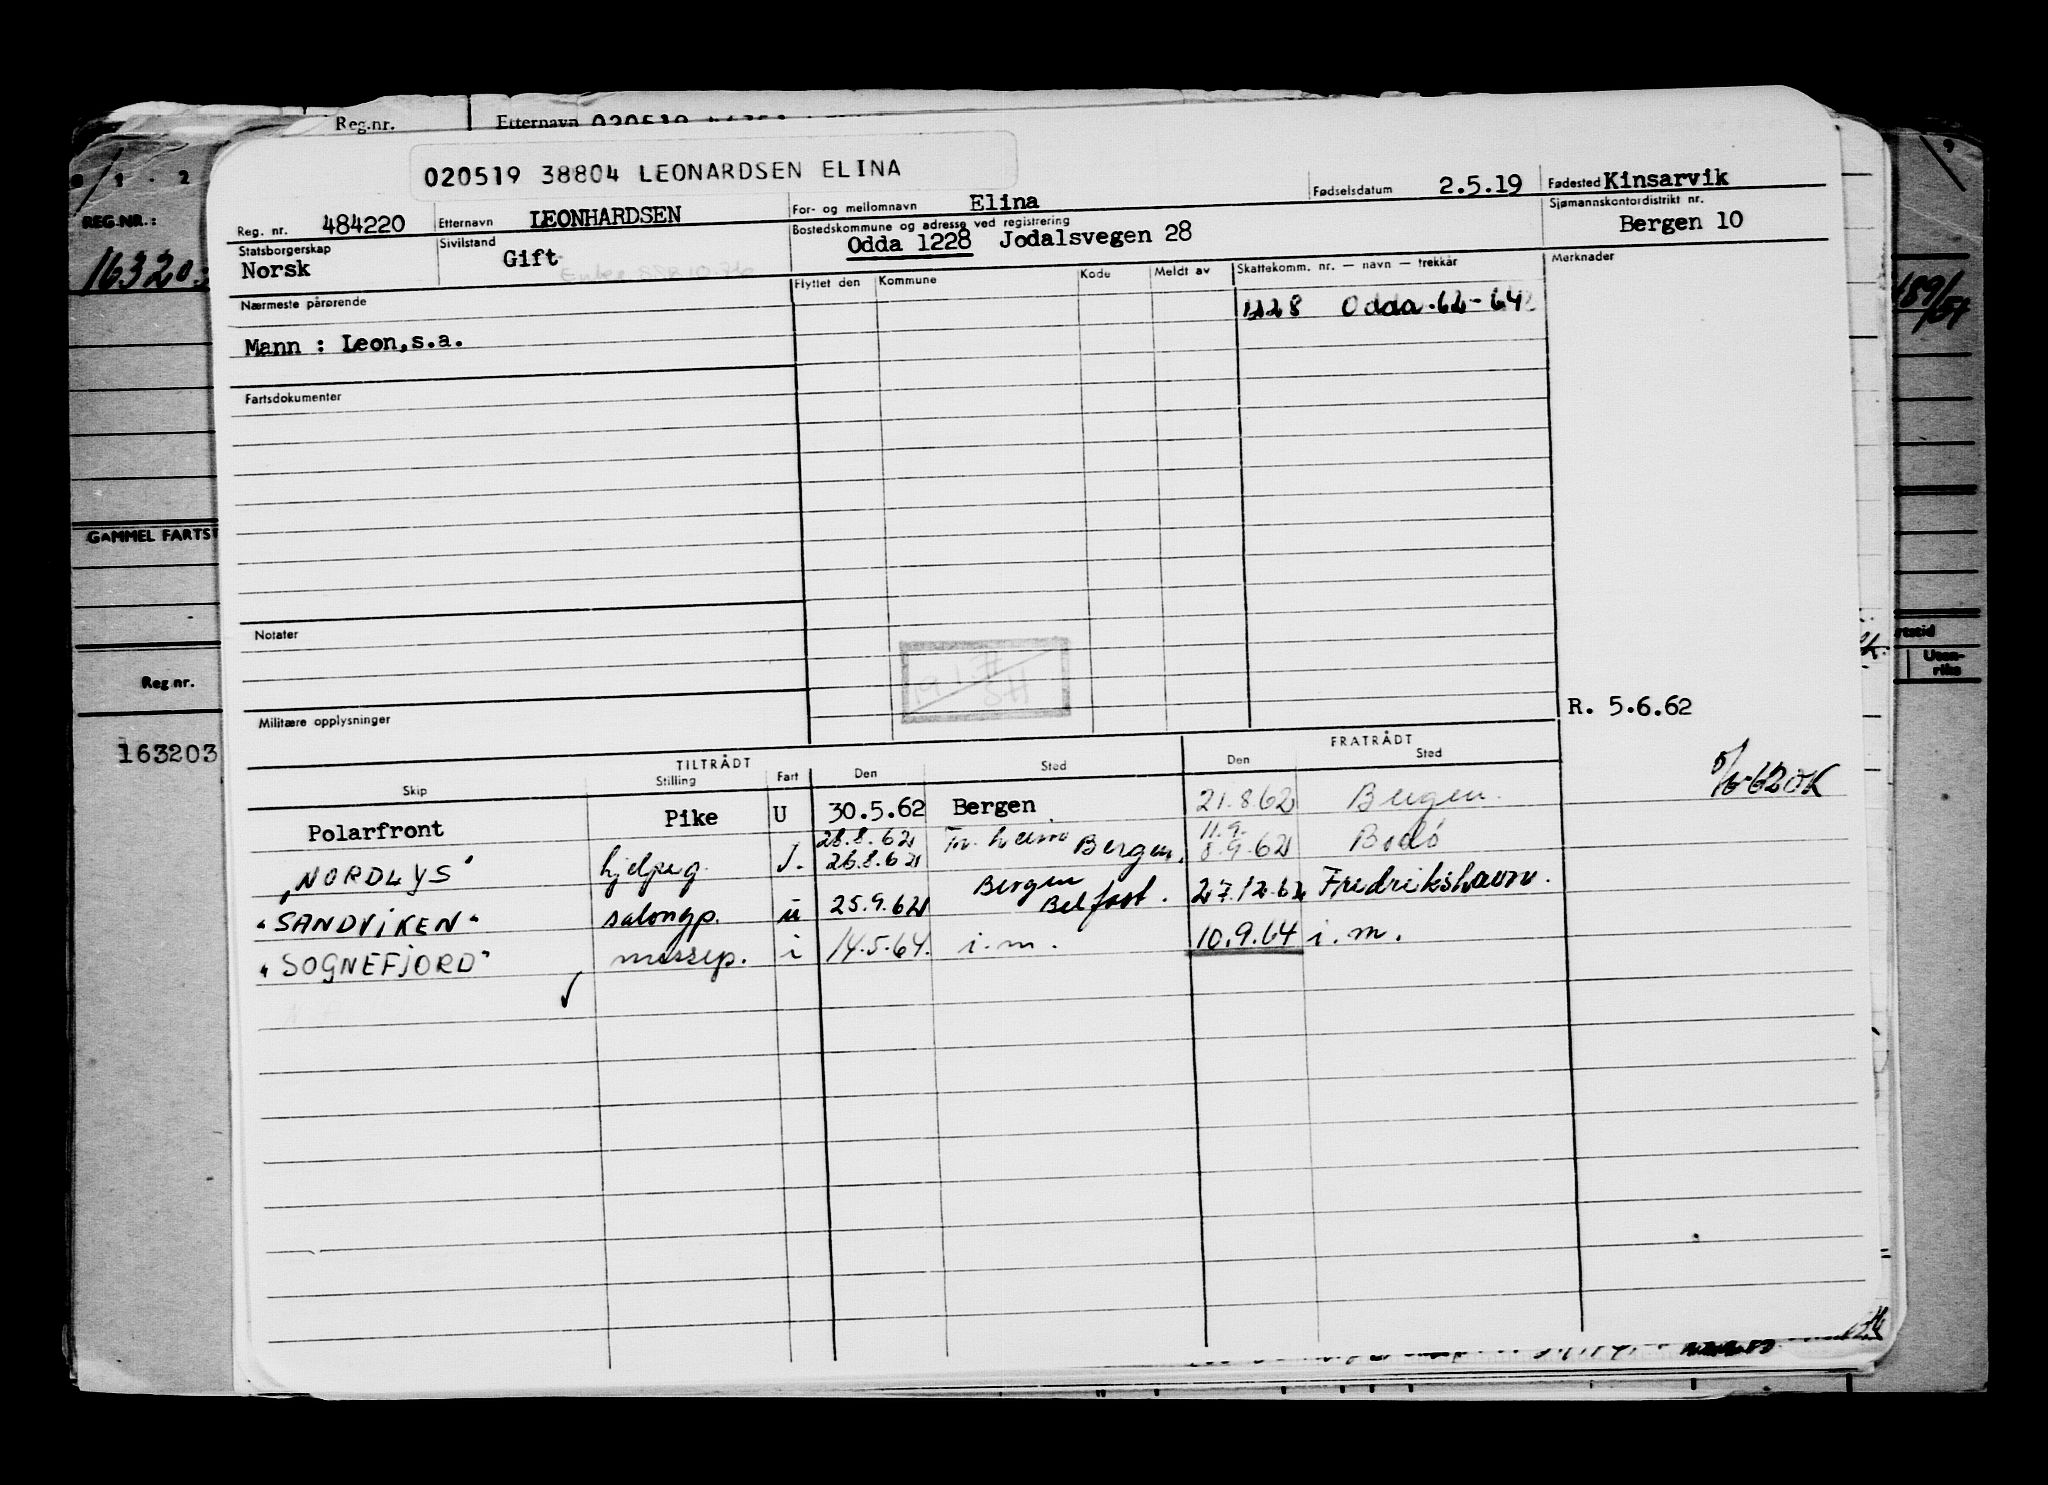 Reg.nr. Etternavn 020519
020519 38804 LEONARDSEN ELINA
REG.NR.:
163203
Reg. nr. 484220 Etternavn LEONHARDSEN For- og mellomnavn Elina Fødselsdatum 2.5.19 Fødested Kinsarvik
Statsborgerskap Norsk Sivilstand Gift Bostedskommune og adresse ved registrering Odda 1228 Jodalsvegen 28 Sjømannskontordistrikt nr. Bergen 10
Nærmeste pårørende Flyttet den Kommune Kode Meldt av Skattekomm. nr. — navn — trekkår Merknader
1228 Odda 62-64
Mann : Leon,s.a.
Fartsdokumenter
GAMMEL FARTST
Notater
Reg.nr.
163203
Militære opplysninger
R. 5.6.62
TILTRÅDT FRATRÅDT
Skip Stilling Fart Den Sted Den Sted
Polarfront Pike U 30.5.62 Bergen 21.8.62 Bergen.
28.8.62 11.9.
"NORDLYS" hjelpeg. J. 26.8.62 Bergen. 8.9.62 Bodø
"SANDVIKEN" salongp. u 25.9.62 Bergen Belfast. 27.12.62 Fredrikshavn.
"SOGNEFJORD" messep. i 14.5.64. i.m. 10.9.64 i.m.